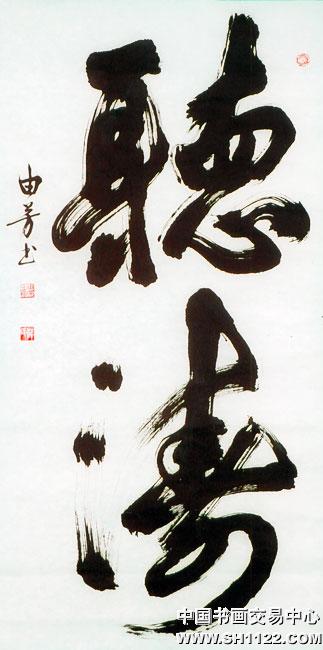 聽濤
由芳书
中国书画交易中心
www.SH1122.com